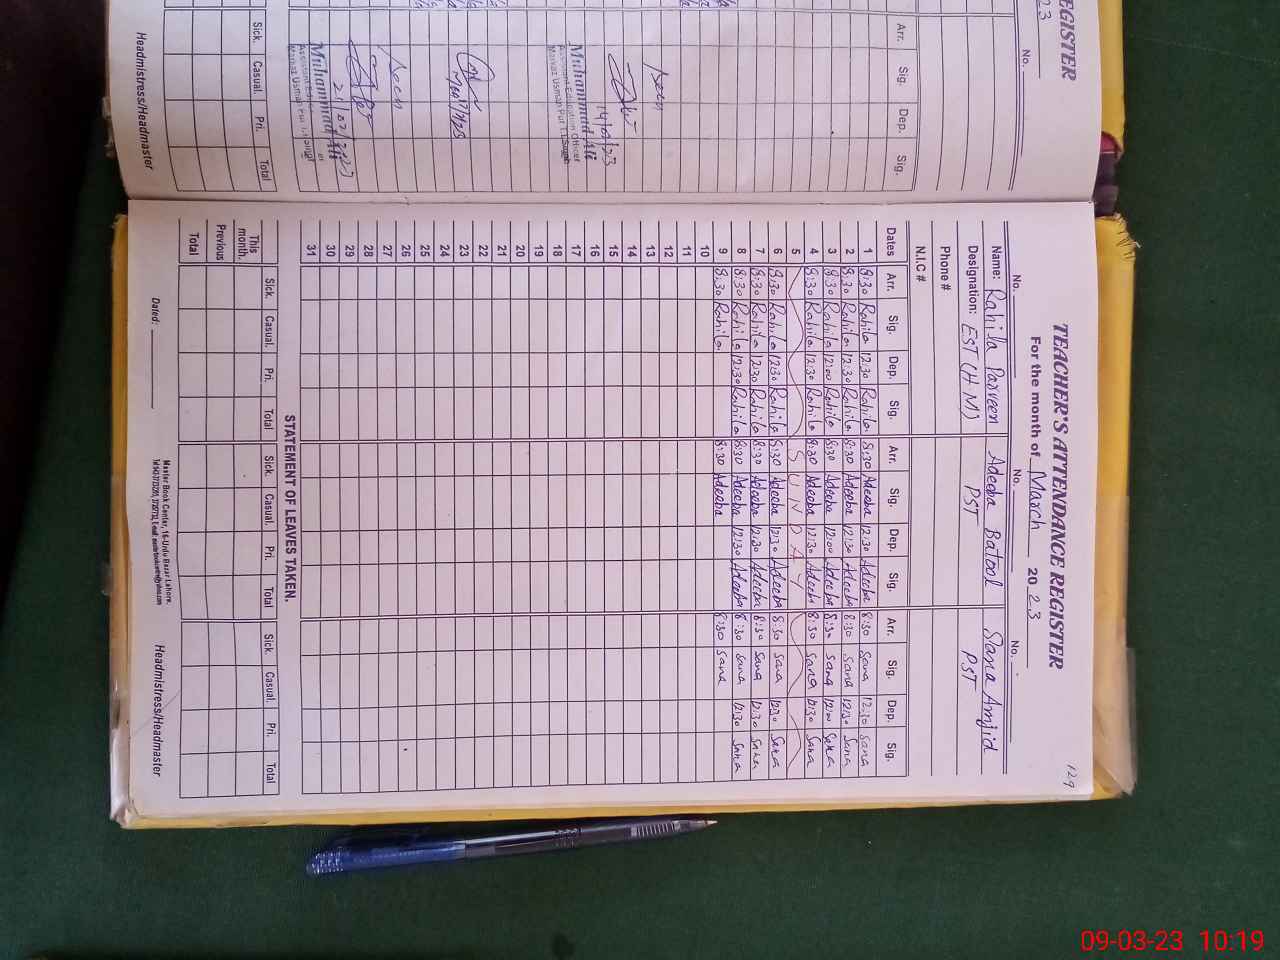 129
TEACHER'S ATTENDANCE REGISTER
For the month of March 2023
No. No. No.
Name: Rahila Parveen Adeeba Batool Sana Amjid
Designation: EST (H.M) PST PST
Phone #
N.I.C #
Dates Arr. Sig. Dep. Sig. Arr. Sig. Dep. Sig. Arr. Sig. Dep. Sig.
1 8:30 Rahila 12:30 Rahila 8:30 Adeeba 12:30 Adeeba 8:30 Sana 12:30 Sana
2 8:30 Rahila 12:30 Rahila 8:30 Adeeba 12:30 Adeeba 8:30 Sana 12:30 Sana
3 8:30 Rahila 12:00 Rahila 8:30 Adeeba 12:00 Adeeba 8:30 Sana 12:00 Sana
4 8:30 Rahila 12:30 Rahila 8:30 Adeeba 12:30 Adeeba 8:30 Sana 12:30 Sana
5 SUNDAY
6 8:30 Rahila 12:30 Rahila 8:30 Adeeba 12:30 Adeeba 8:30 Sana 12:30 Sana
7 8:30 Rahila 12:30 Rahila 8:30 Adeeba 12:30 Adeeba 8:30 Sana 12:30 Sana
8 8:30 Rahila 12:30 Rahila 8:30 Adeeba 12:30 Adeeba 8:30 Sana 12:30 Sana
9 8:30 Rahila 8:30 Adeeba 8:30 Sana
10
11
12
13
14
15
16
17
18
19
20
21
22
23
24
25
26
27
28
29
30
31
STATEMENT OF LEAVES TAKEN.
Sick. Casual. Pri. Total Sick. Casual. Pri. Total Sick. Casual. Pri. Total
This month.
Previous
Total
Dated: Headmistress/Headmaster
Master Book Center, 16-Urdu Bazar Lahore.
REGISTER
23
No.
Arr. Sig. Dep. Sig.
Seen
14/02/23
Muhammad Ali
Assistant Education Officer
Markaz Usman Pur
Seen
Muhammad Ali
Markaz Usman Pur
Sick. Casual. Pri. Total
Headmistress/Headmaster
09-03-23 10:19